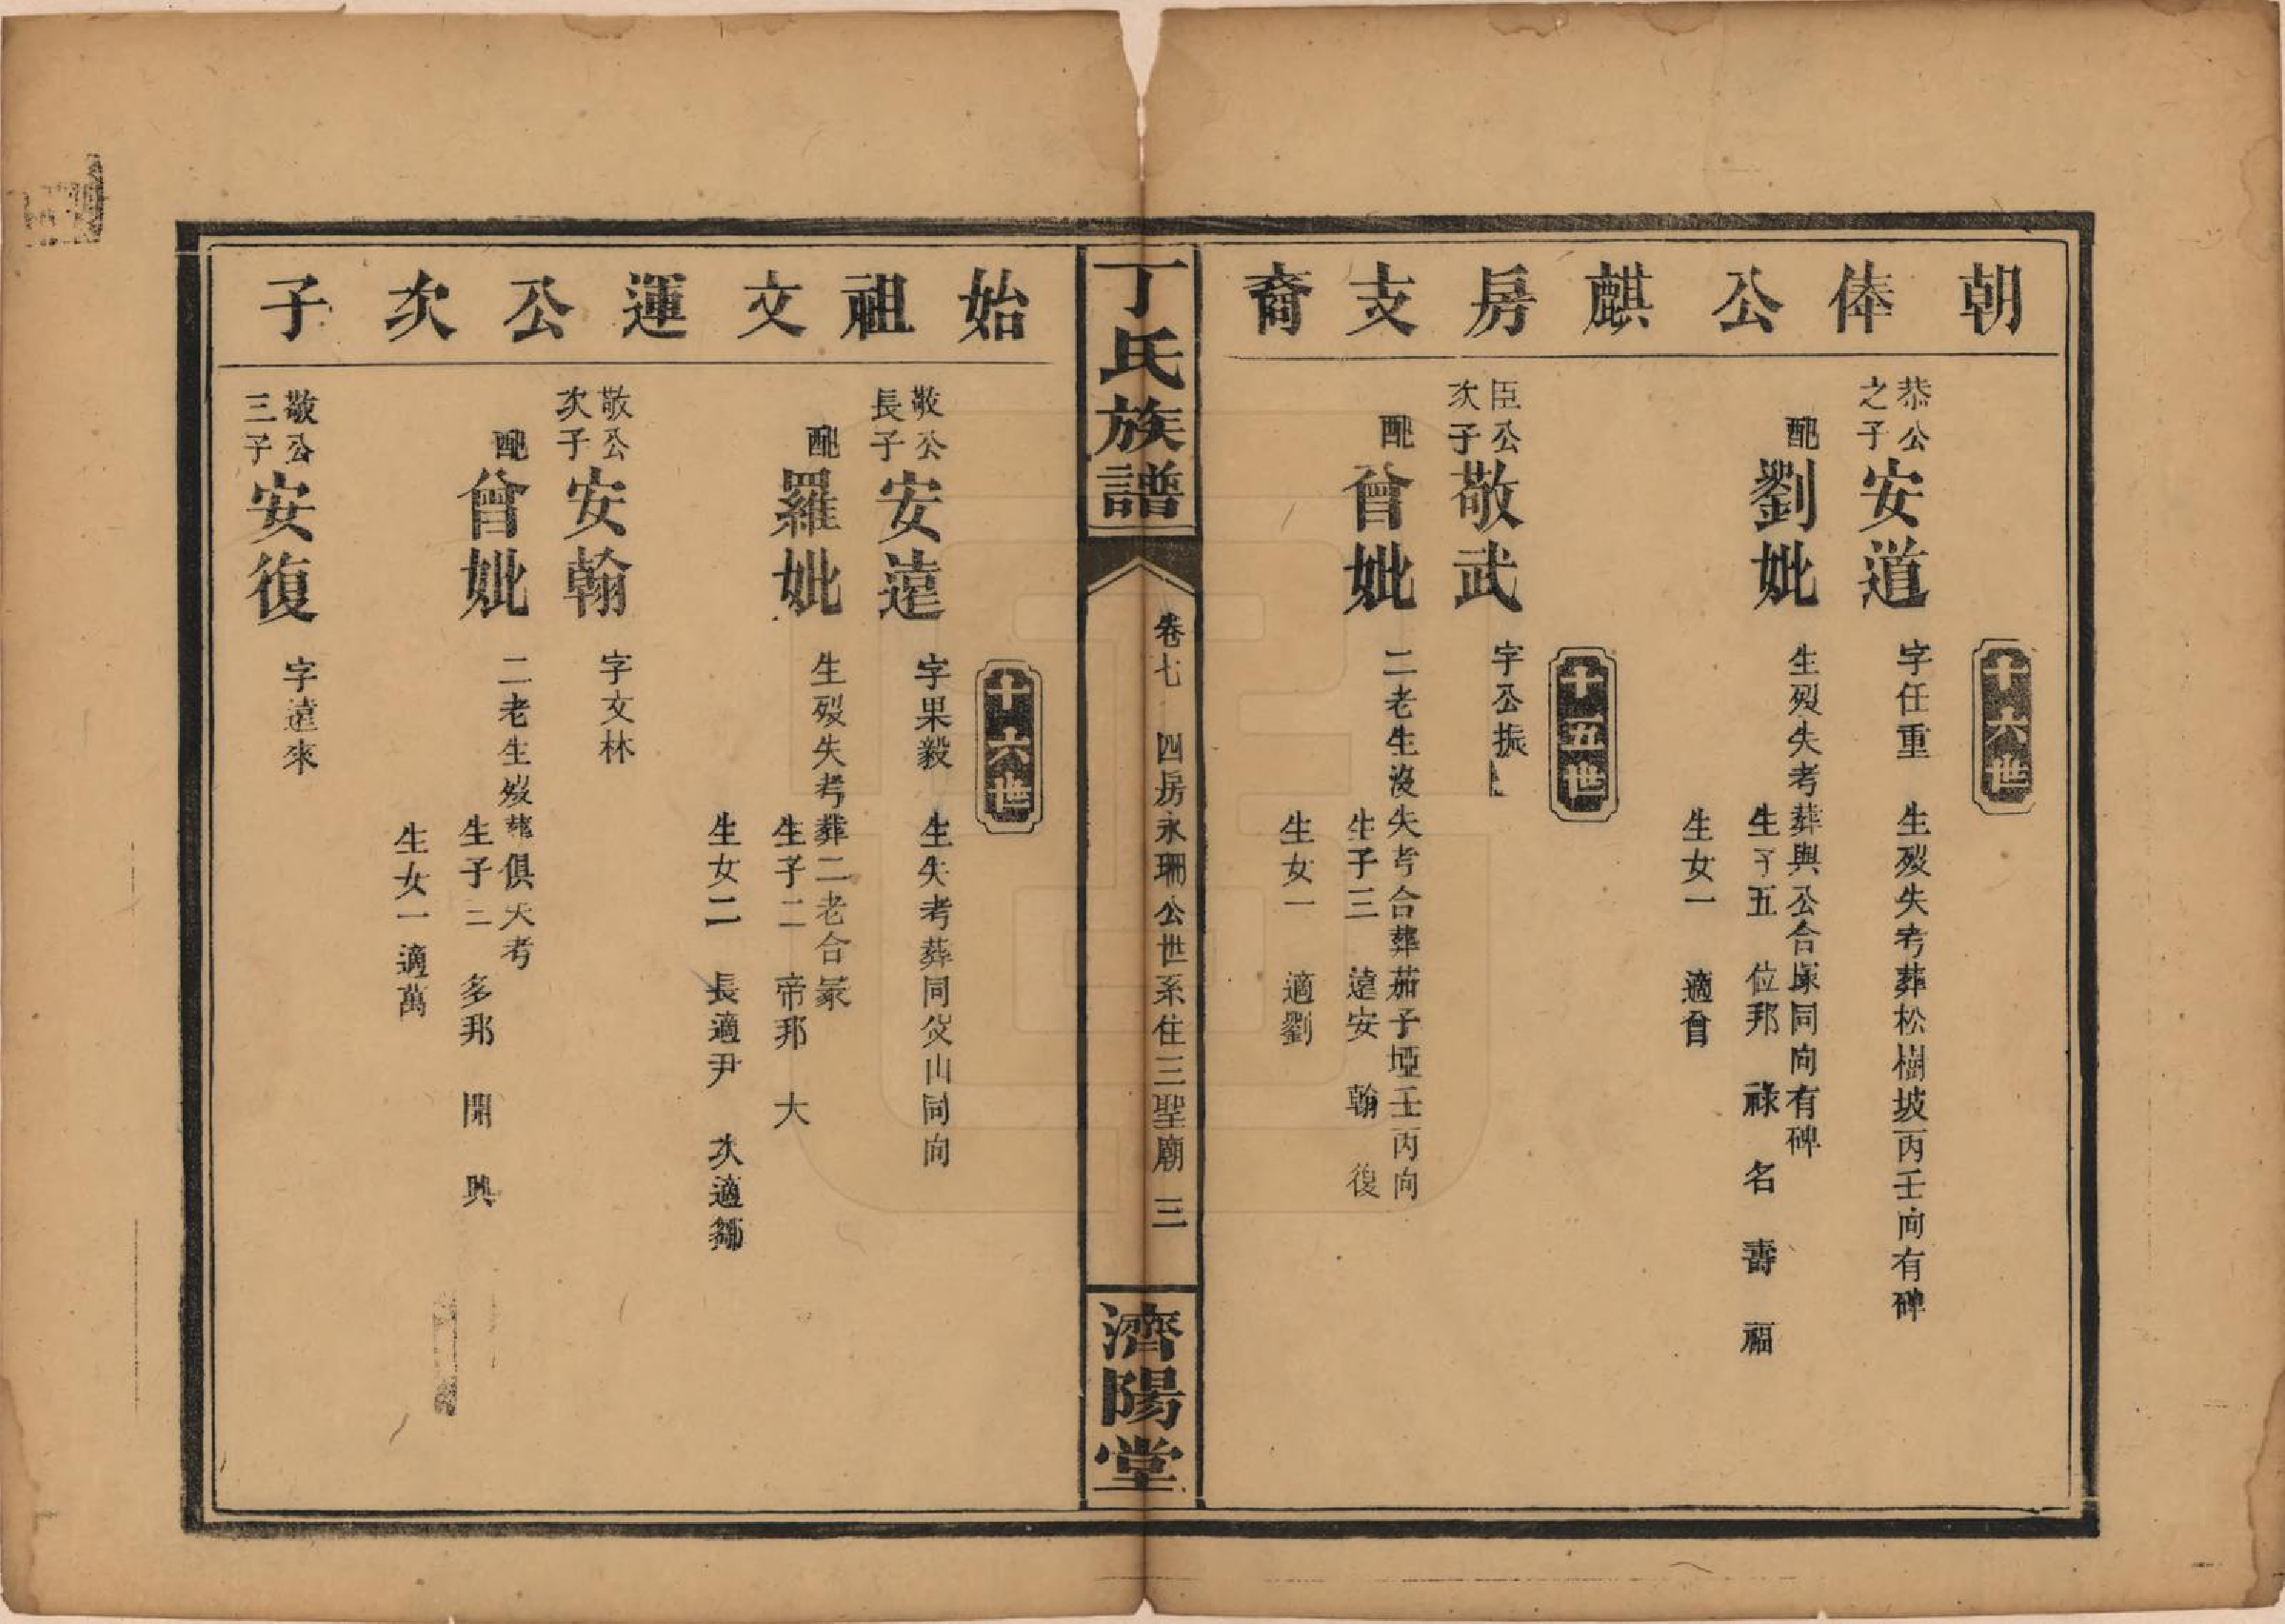 朝俸公麒房支裔
十六世
恭公之子
安道
字任重
生殁失考葬松樹坡丙壬向有碑
配
劉妣
生殁失考葬與公合塚同向有碑
生子五
位邦
祿
名
壽
福
生女一
適曾
十五世
臣公次子
敬武
字公振
配
曾妣
二老生沒失考合葬茄子埡壬丙向
生子三
遠安
翰
復
生女一
適劉
丁氏族譜
卷七
四房永珊公世系住三聖廟
三
濟陽堂
始祖文運公次子
十六世
敬公長子
安遠
字果毅
生失考葬同父山同向
配
羅妣
生殁失考葬二老合冢
生子二
帝邦
大
生女二
長適尹
次適鄒
敬公次子
安翰
字文林
配
曾妣
二老生殁葬俱失考
生子三
多邦
開
興
生女一適萬
敬公三子
安復
字遠來